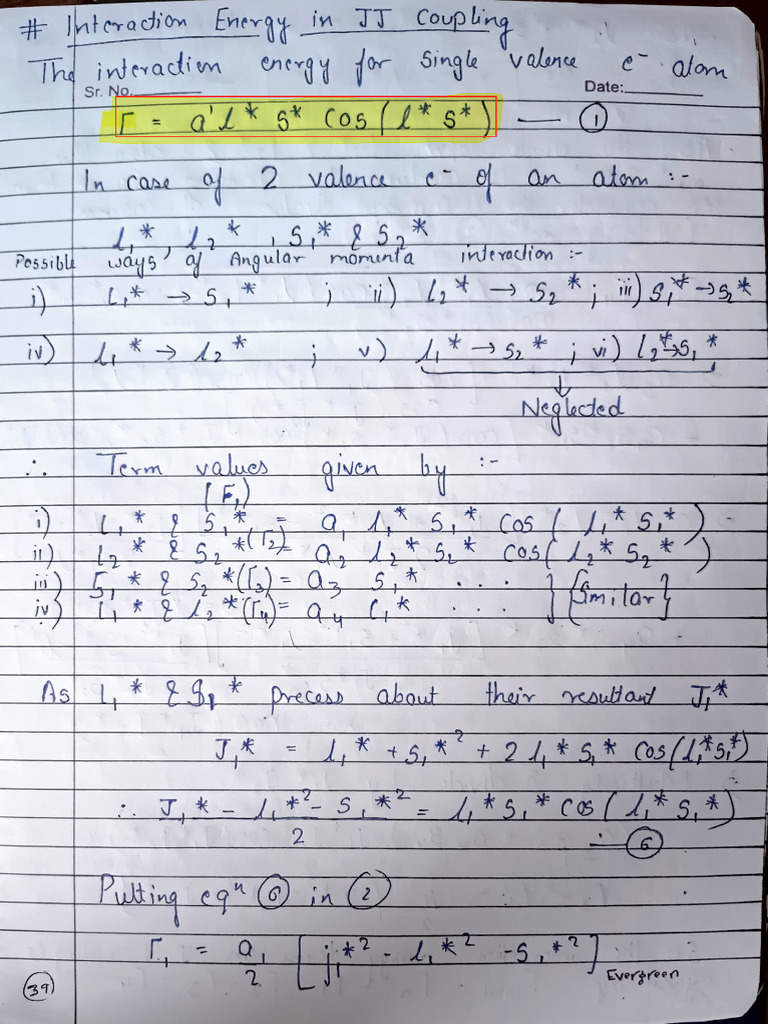 # Interaction Energy in JJ Coupling
The interaction energy for single valence e⁻ atom
Sr. No. Date:
Γ = a'l* s* cos(l* s*) — ①
In case of 2 valence e⁻ of an atom :-
l₁*, l₂*, s₁* & s₂*
Possible ways of Angular momenta interaction :-
i) l₁* → s₁* ; ii) l₂* → s₂* ; iii) s₁* → s₂*
iv) l₁* → l₂* ; v) l₁* → s₂* ; vi) l₂* → s₁*
Neglected
∴ Term values given by :-
(Γ₁)
i) l₁* & s₁* = a₁ l₁* s₁* cos( l₁* s₁*)
ii) l₂* & s₂* (Γ₂) = a₂ l₂* s₂* cos( l₂* s₂*)
iii) s₁* & s₂* (Γ₃) = a₃ s₁* . . . } {Similar}
iv) l₁* & l₂* (Γ₄) = a₄ l₁* . . .
As l₁* & s₁* precess about their resultant J₁*
J₁* = l₁* + s₁*² + 2 l₁* s₁* cos(l₁* s₁*)
∴ J₁* - l₁*² - s₁*² = l₁* s₁* cos( l₁* s₁*)
2 — ⑥
Putting eqⁿ ⑥ in ②
Γ₁ = a₁/2 [j₁*² - l₁*² - s₁*²]
Evergreen
39